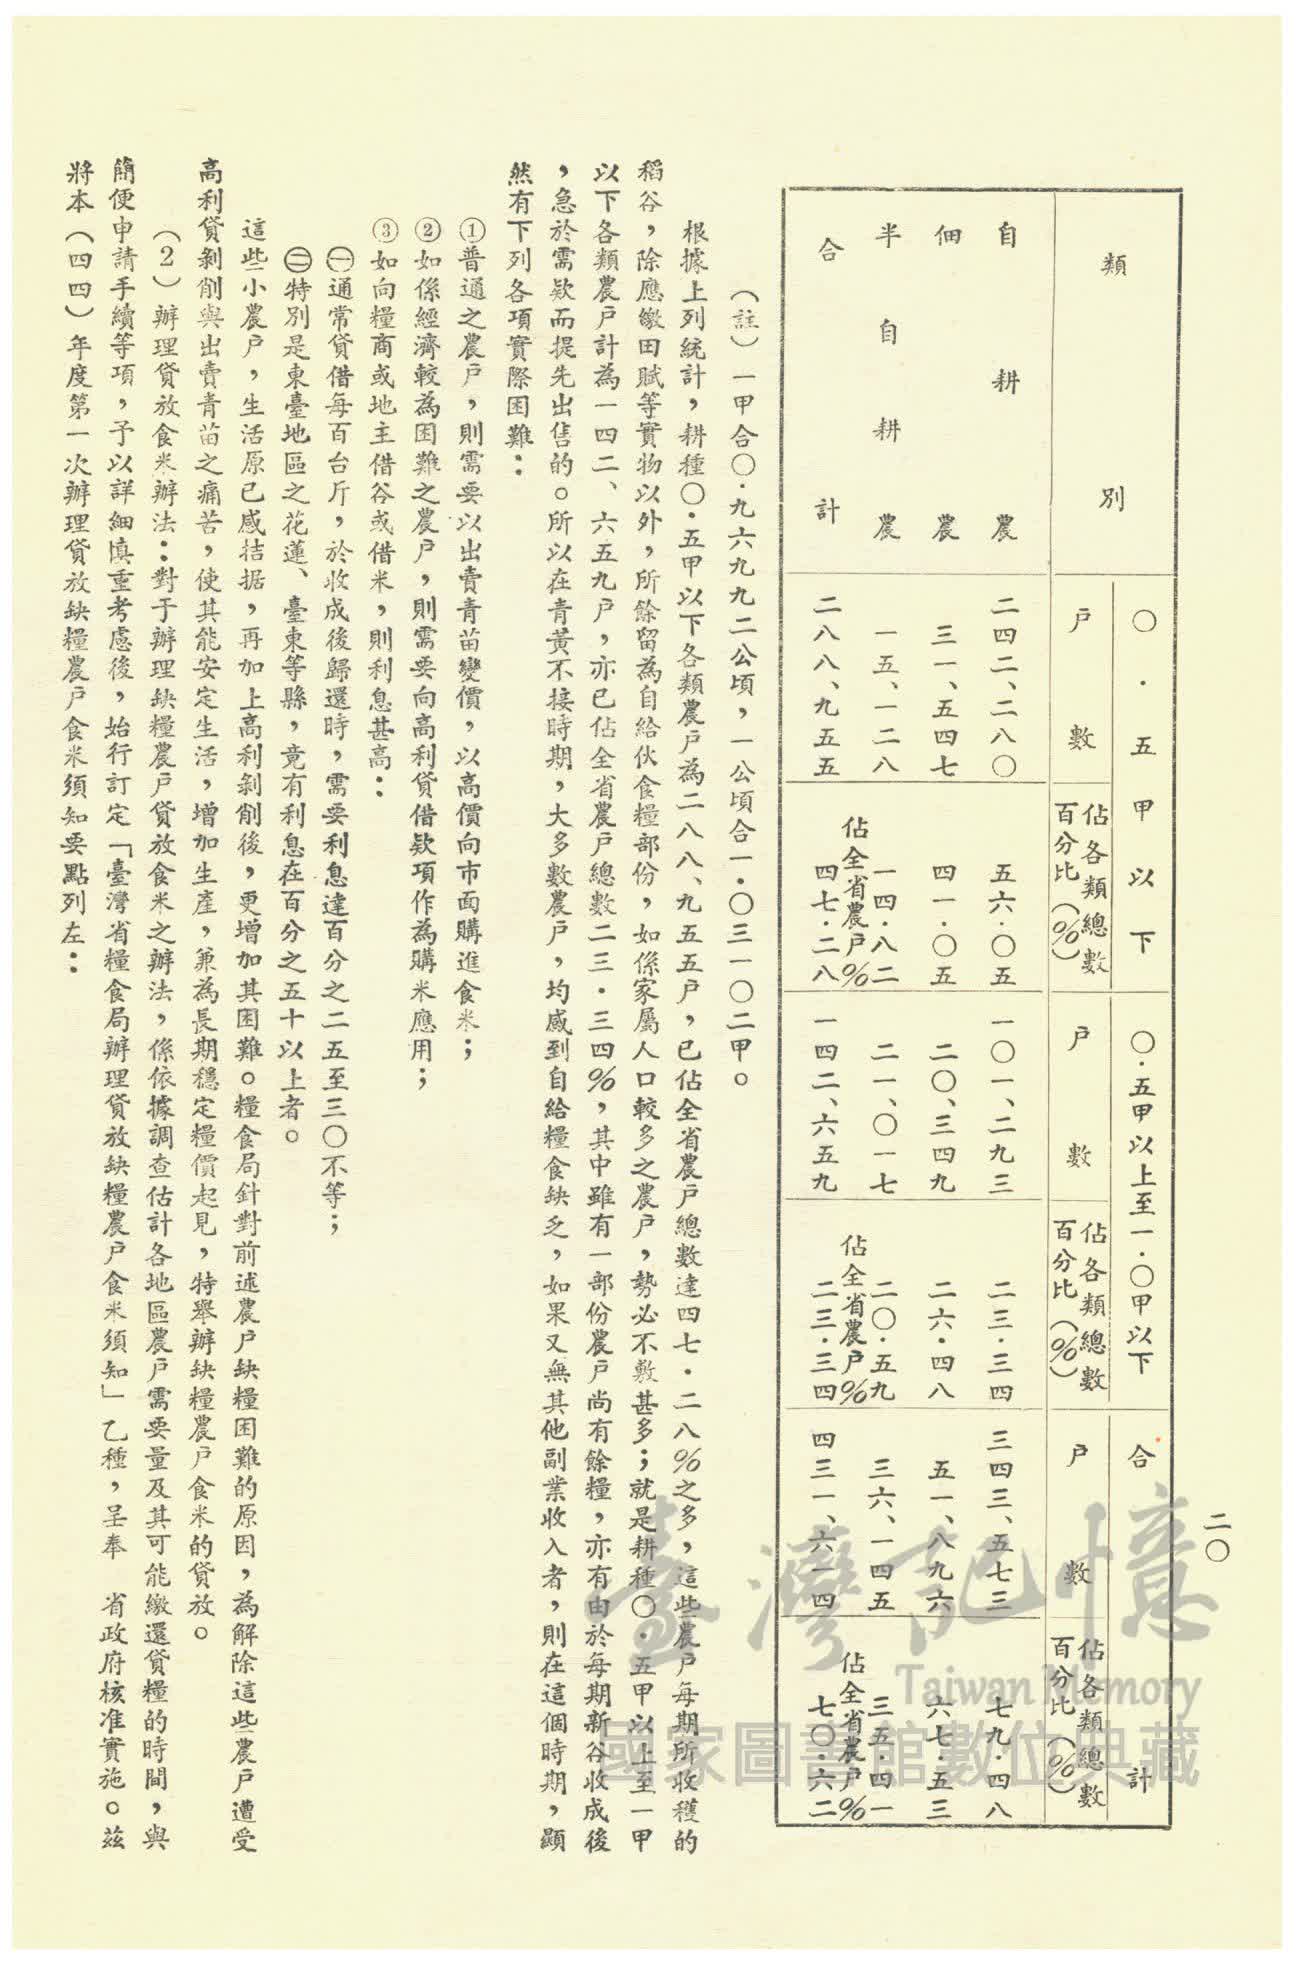 二〇
類別
〇．五甲以下
〇．五甲以上至一．〇甲以下
合計
戶數
佔各類總數
百分比（%）
戶數
佔各類總數
百分比（%）
戶數
佔各類總數
百分比（%）
自耕農
二四二、二八〇
五六．〇五
一〇一、二九三
二三．三四
三四三、五七三
七九．四八
佃農
三一、五四七
四一．〇五
二〇、三四九
二六．四八
五一、八九六
六七．五三
半自耕農
一五、一二八
一四．八二
二一、〇一七
二〇．五九
三六、一四五
三五．四一
合計
二八八、九五五
佔全省農戶%
四七．二八
一四二、六五九
佔全省農戶%
二三．三四
四三一、六一四
佔全省農戶%
七〇．六二
（註）一甲合〇．九六九九二公頃，一公頃合一．〇三一〇二甲。
根據上列統計，耕種〇．五甲以下各類農戶為二八八、九五五戶，已佔全省農戶總數達四七．二八%之多，這些農戶每期所收穫的
稻谷，除應繳田賦等實物以外，所餘留為自給伙食糧部份，如係家屬人口較多之農戶，勢必不敷甚多；就是耕種〇．五甲以上至一甲
以下各類農戶計為一四二、六五九戶，亦已佔全省農戶總數二三．三四%，其中雖有一部份農戶尚有餘糧，亦有由於每期新谷收成後
，急於需欵而提先出售的。所以在青黃不接時期，大多數農戶，均感到自給糧食缺乏，如果又無其他副業收入者，則在這個時期，顯
然有下列各項實際困難：
①普通之農戶，則需要以出賣青苗變價，以高價向市面購進食米；
②如係經濟較為困難之農戶，則需要向高利貸借欵項作為購米應用；
③如向糧商或地主借谷或借米，則利息甚高：
㊀通常貸借每百台斤，於收成後歸還時，需要利息達百分之二五至三〇不等；
㊁特別是東臺地區之花蓮、臺東等縣，竟有利息在百分之五十以上者。
這些小農戶，生活原已感拮据，再加上高利剝削後，更增加其困難。糧食局針對前述農戶缺糧困難的原因，為解除這些農戶遭受
高利貸剝削與出賣青苗之痛苦，使其能安定生活，增加生產，兼為長期穩定糧價起見，特舉辦缺糧農戶食米的貸放。
（2）辦理貸放食米辦法：對于辦理缺糧農戶貸放食米之辦法，係依據調查估計各地區農戶需要量及其可能繳還貸糧的時間，與
簡便申請手續等項，予以詳細慎重考慮後，始行訂定「臺灣省糧食局辦理貸放缺糧農戶食米須知」乙種，呈奉　省政府核准實施。茲
將本（四四）年度第一次辦理貸放缺糧農戶食米須知要點列左：
臺灣記憶
Taiwan Memory
國家圖書館數位典藏